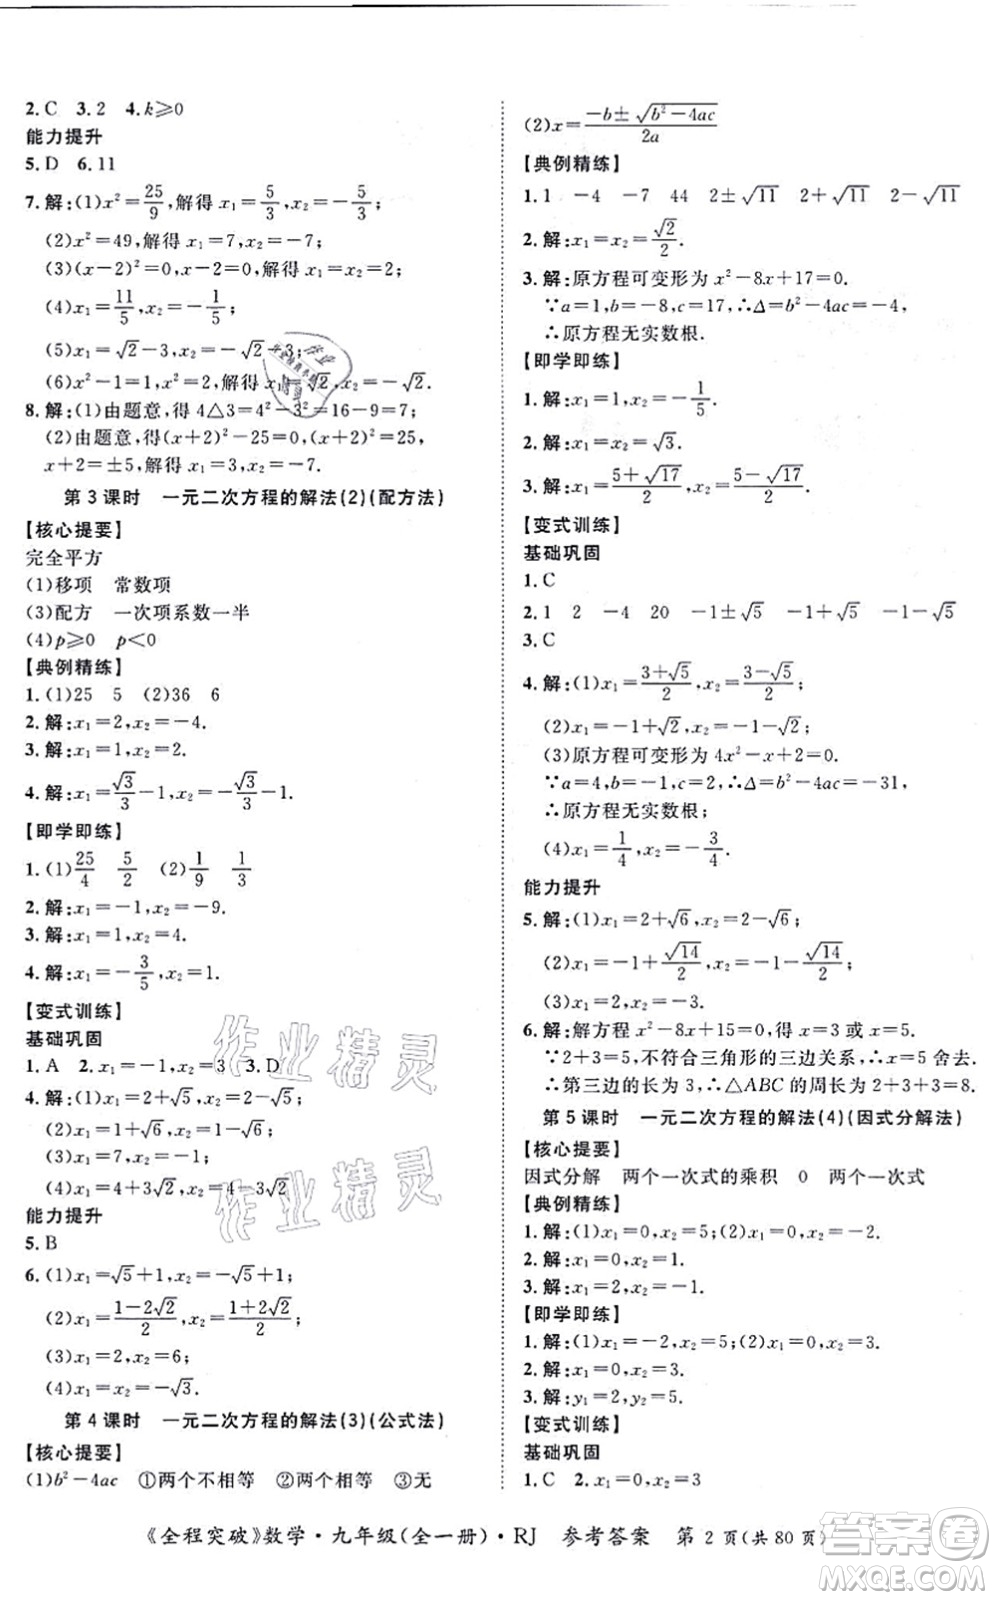 2.C 3.2 4.k≥0
能力提升
5.D 6.11
7.解:(1)x²=25/9,解得 x₁=5/3,x₂=-5/3;
(2)x²=49,解得 x₁=7,x₂=-7;
(3)(x-2)²=0,x-2=0,解得 x₁=x₂=2;
(4)x₁=11/5,x₂=-1/5;
(5)x₁=√2-3,x₂=-√2-3;
(6)x²-1=1,x²=2,解得 x₁=√2,x₂=-√2.
8.解:(1)由题意,得 4△3=4²-3²=16-9=7;
(2)由题意,得(x+2)²-25=0,(x+2)²=25,
x+2=±5,解得 x₁=3,x₂=-7.
第 3 课时 一元二次方程的解法(2)(配方法)
【核心提要】
完全平方
(1)移项 常数项
(3)配方 一次项系数一半
(4)p≥0 p<0
【典例精练】
1.(1)25 5 (2)36 6
2.解:x₁=2,x₂=-4.
3.解:x₁=1,x₂=2.
4.解:x₁=√3/3-1,x₂=-√3/3-1.
【即学即练】
1.(1)25/4 5/2 (2)1/9 1/3
2.解:x₁=-1,x₂=-9.
3.解:x₁=1,x₂=4.
4.解:x₁=-3/5,x₂=1.
【变式训练】
基础巩固
1.A 2.x₁=-1,x₂=3 3.D
4.解:(1)x₁=2+√5,x₂=2-√5;
(2)x₁=1+√6,x₂=1-√6;
(3)x₁=-1,x₂=4;
(4)x₁=4+3√2,x₂=4-3√2
能力提升
5.B
6.(1)x₁=√5+1,x₂=-√5+1;
(2)x₁=1-2√2/2,x₂=1+2√2/2;
(3)x₁=2,x₂=6;
(4)x₁=x₂=-√3.
第 4 课时 一元二次方程的解法(3)(公式法)
【核心提要】
(1)b²-4ac ①两个不相等 ②两个相等 ③无
(2)x=-b±√b²-4ac/2a
【典例精练】
1.1 -4 -7 44 2±√11 2+√11 2-√11
2.解:x₁=x₂=√2/2.
3.解:原方程可变形为 x²-8x+17=0.
∵a=1,b=-8,c=17,∴Δ=b²-4ac=-4,
∴原方程无实数根.
【即学即练】
1.解:x₁=1,x₂=-1/5.
2.解:x₁=x₂=√3.
3.解:x₁=5+√17/2,x₂=5-√17/2.
【变式训练】
基础巩固
1.C
2.1 2 -4 20 -1±√5 -1+√5 -1-√5
3.C
4.解:(1)x₁=3+√5/2,x₂=3-√5/2;
(2)x₁=-1+√2,x₂=-1-√2;
(3)原方程可变形为 4x²-x+2=0.
∵a=4,b=-1,c=2,∴Δ=b²-4ac=-31,
∴原方程无实数根;
(4)x₁=1/4,x₂=-3/4.
能力提升
5.解:(1)x₁=2+√6,x₂=2-√6;
(2)x₁=-1+√14/2,x₂=-1-√14/2;
(3)x₁=2,x₂=-1.
6.解:解方程 x²-8x+15=0,得 x=3 或 x=5.
∵2+3=5,不符合三角形的三边关系,∴x=5 舍去.
∴第三边的长为 3,∴△ABC 的周长为 2+3+3=8.
第 5 课时 一元二次方程的解法(4)(因式分解法)
【核心提要】
因式分解 两个一次式的乘积 0 两个一次式
【典例精练】
1.解:(1)x₁=0,x₂=5;(2)x₁=0,x₂=-2.
2.解:x₁=0,x₂=1.
3.解:x₁=1,x₂=-1.
【即学即练】
1.解:(1)x₁=-2,x₂=5;(2)x₁=0,x₂=3.
2.解:x₁=0,x₂=3.
3.解:y₁=2,y₂=-3.
【变式训练】
基础巩固
1.C 2.x₁=0,x₂=3
《全程突破》数学·九年级(全一册)·RJ 参考答案 第 2 页(共 80 页)
作业精灵
作业精灵
答案圈
MXQE.COM